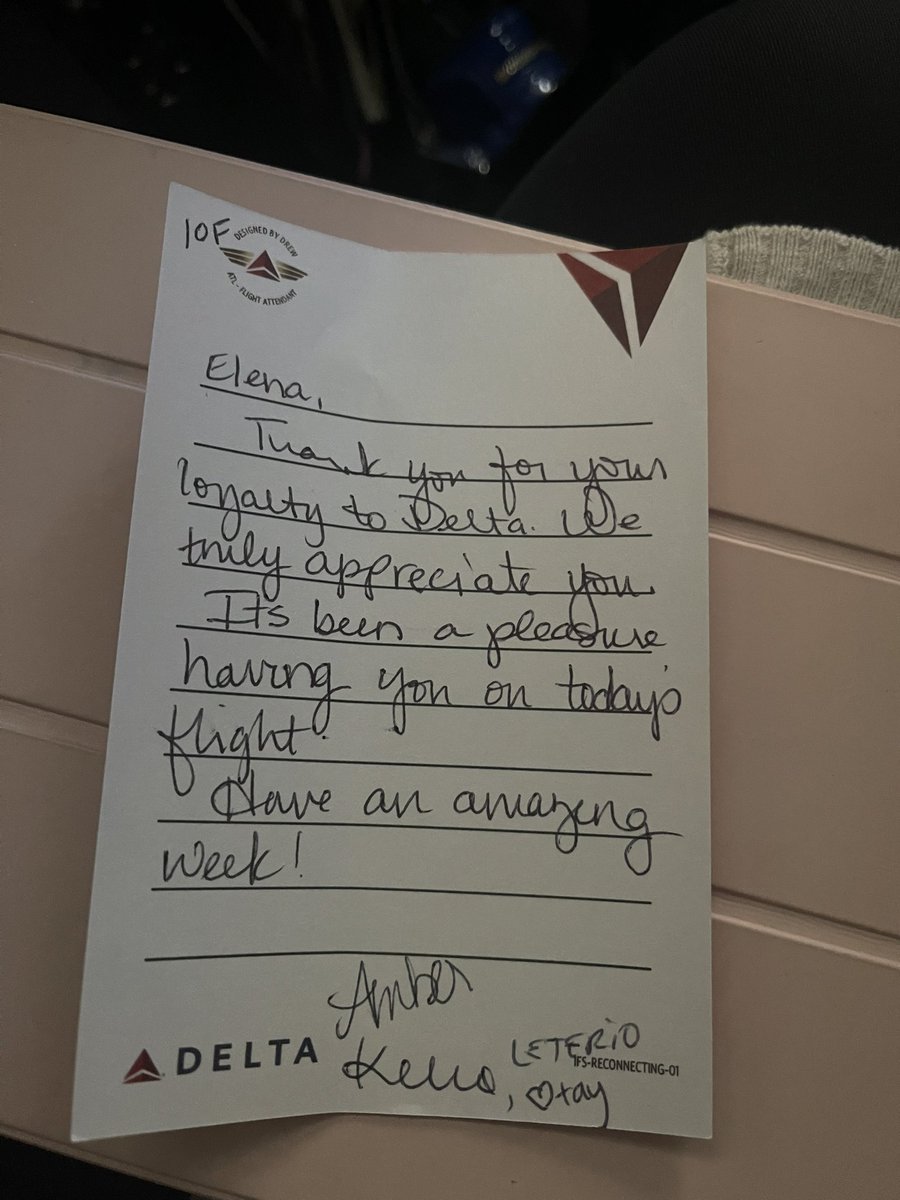 10F
DESIGNED BY DREW
ATL - FLIGHT ATTENDANT
Elena,
Thank you for your
loyalty to Delta. We
truly appreciate you.
It's been a pleasure
having you on today's
flight.
Have an amazing
week!
Amber
DELTA
LETERIO
IFS-RECONNECTING-01